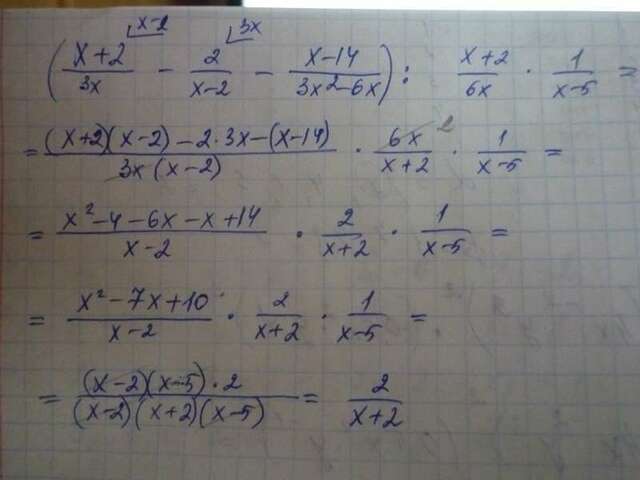 ((x+2)/(3x) ^(x-2) - 2/(x-2) ^(3x) - (x-14)/(3x²-6x)) : (x+2)/(6x) · 1/(x-5) =
= ((x+2)(x-2)-2·3x-(x-14))/(3x(x-2)) · 6x ²/(x+2) · 1/(x-5) =
= (x²-4-6x-x+14)/(x-2) · 2/(x+2) · 1/(x-5) =
= (x²-7x+10)/(x-2) · 2/(x+2) · 1/(x-5) =
= ((x-2)(x-5)·2)/((x-2)(x+2)(x-5)) = 2/(x+2)